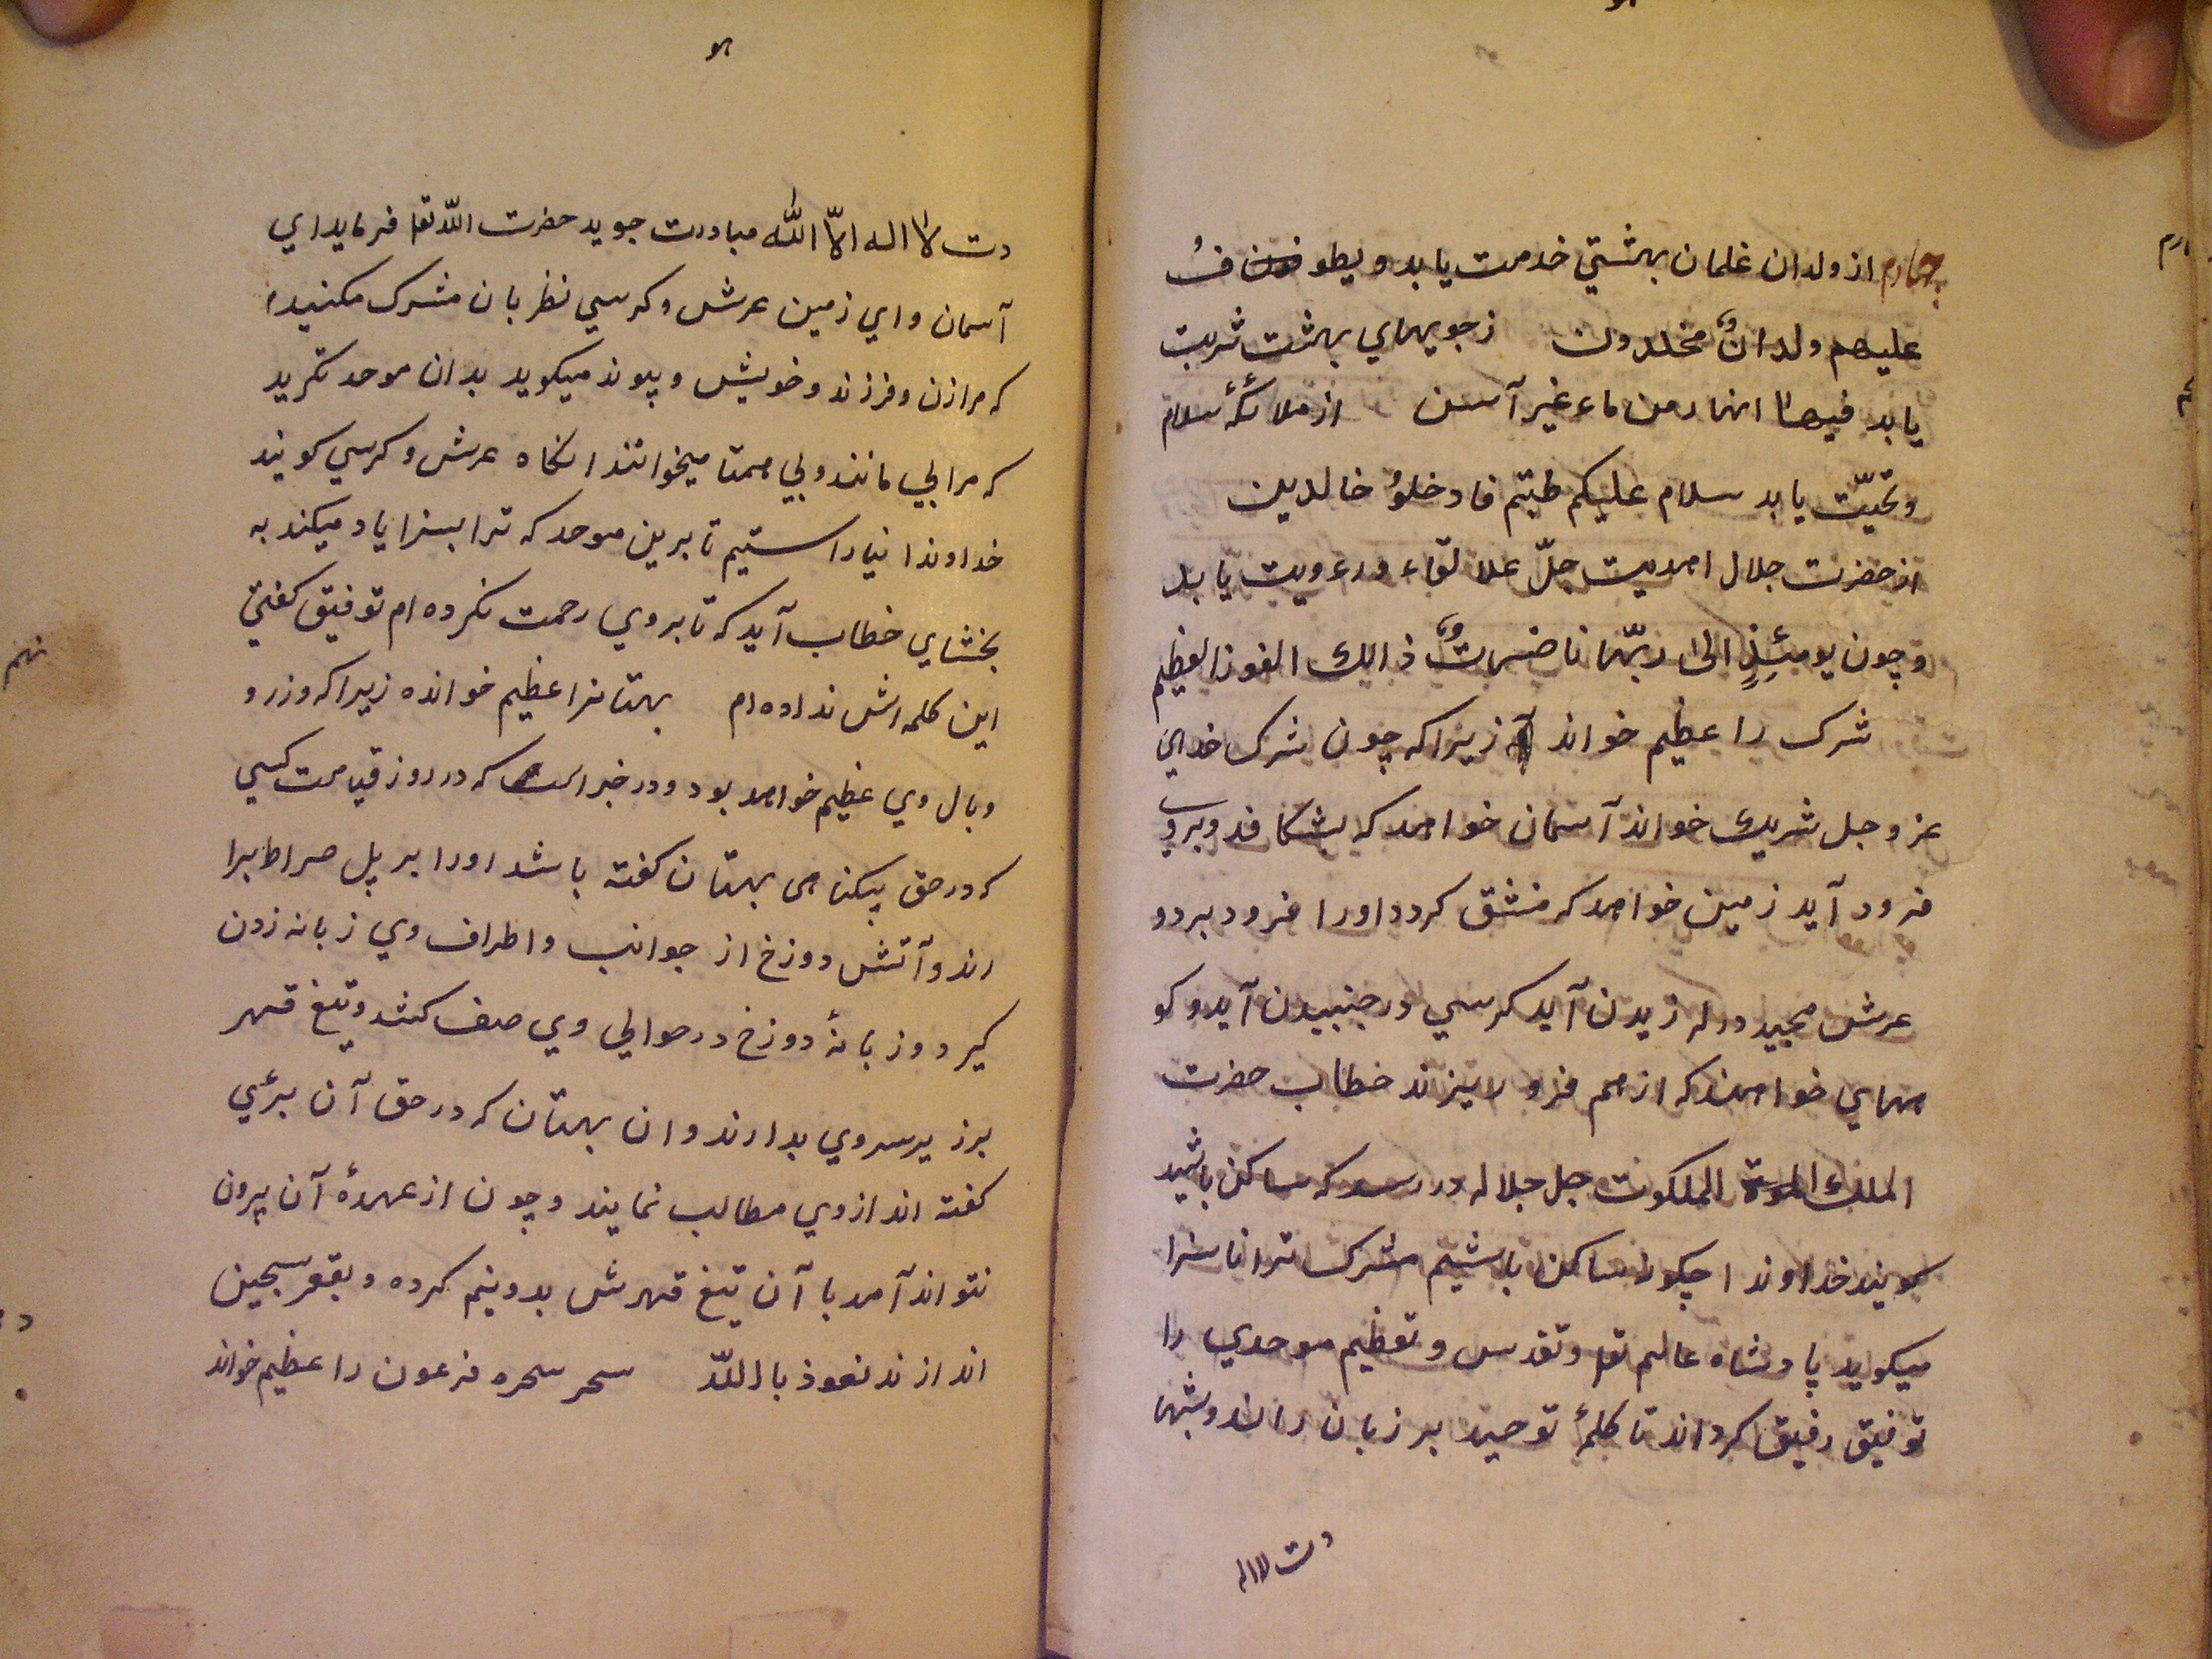 چهارم از ولدان غلمان بهشتي خدمت يابد و يطوفُ
عليهم ولدانٌ مخلدون زجويهاي بهشت شربت
يابد فيها انهار من ماء غير آسن از ملائكهٔ سلام
و تحيّت يابد سلام عليكم طبتم فادخلوُ خالدين
از حضرت جلال احديت جلّ علا لقاء و رءويت يابد
و چون يومئِذٍ الى ربّها ناضراتٌ ذالك الفوز العظيم
شرك را عظيم خواند زيرا كه چون شرك خداي
عز و جل شريك خواند آسمان خواهد كه بشكافد و بروي
فرود آيد زمين خواهد كه منشق كردد اورا فرود برد و
عرش مجيد در لرزيدن آيد كرسي در جنبيدن آيد و كو
ههاي خواهند كه از هم فرو ريزند خطاب حضرت
الملك الملكوت جل جلاله در رسد كه ساكن باشيد
كويند خداوندا چكونه ساكن باشيم مشرك ترا ناسزا
ميكويد پادشاه عالم تعا و تقدس و تعظيم موحدي را
توفيق رفيق كرداند تا كلمهٔ توحيد بر زبان راند و بشها
دت لااله
هو
دت لا اله الاّ اللّٰه مبادرت جويد حضرت اللّٰه تعا فرمايد اي
آسمان و اي زمين عرش و كرسي نظر بان مشرك مكنيد
كه مرا زن و فرزند و خويش و پيوند ميكويد بدان موحد نكريد
كه مرا بي مانند و بي همتا ميخوانند انكاه عرش و كرسي كويند
خداوندا نياراستيم تا برين موحد كه ترا بسزا ياد ميكند به
بخشاي خطاب آيد كه تا بروي رحمت نكرده ام توفيق كفتن
اين كلمه اش نداده ام بهتانرا عظيم خوانده زيرا كه وزر و
وبال وي عظيم خواهد بود و در خبر است كه در روز قيامت كسي
كه در حق بيكناهى بهتان كفته باشد اورا بر پل صراط برا
رند و آتش دوزخ از جوانب و اطراف وي زبانه زدن
كيرد و زبانهٔ دوزخ در حوالي وي صف كشد و تيغ قهر
برزير سر وي بدارند و ان بهتان كه در حق آن برئي
كفته اند از وي مطالب نمايند و چون از عهدهٔ آن بيرون
نتواند آمد با آن تيغ قهرش بدو نيم كرده و بقعر سجين
اندازند نعوذ باللّٰه سحر سحره فرعون را عظيم خواند